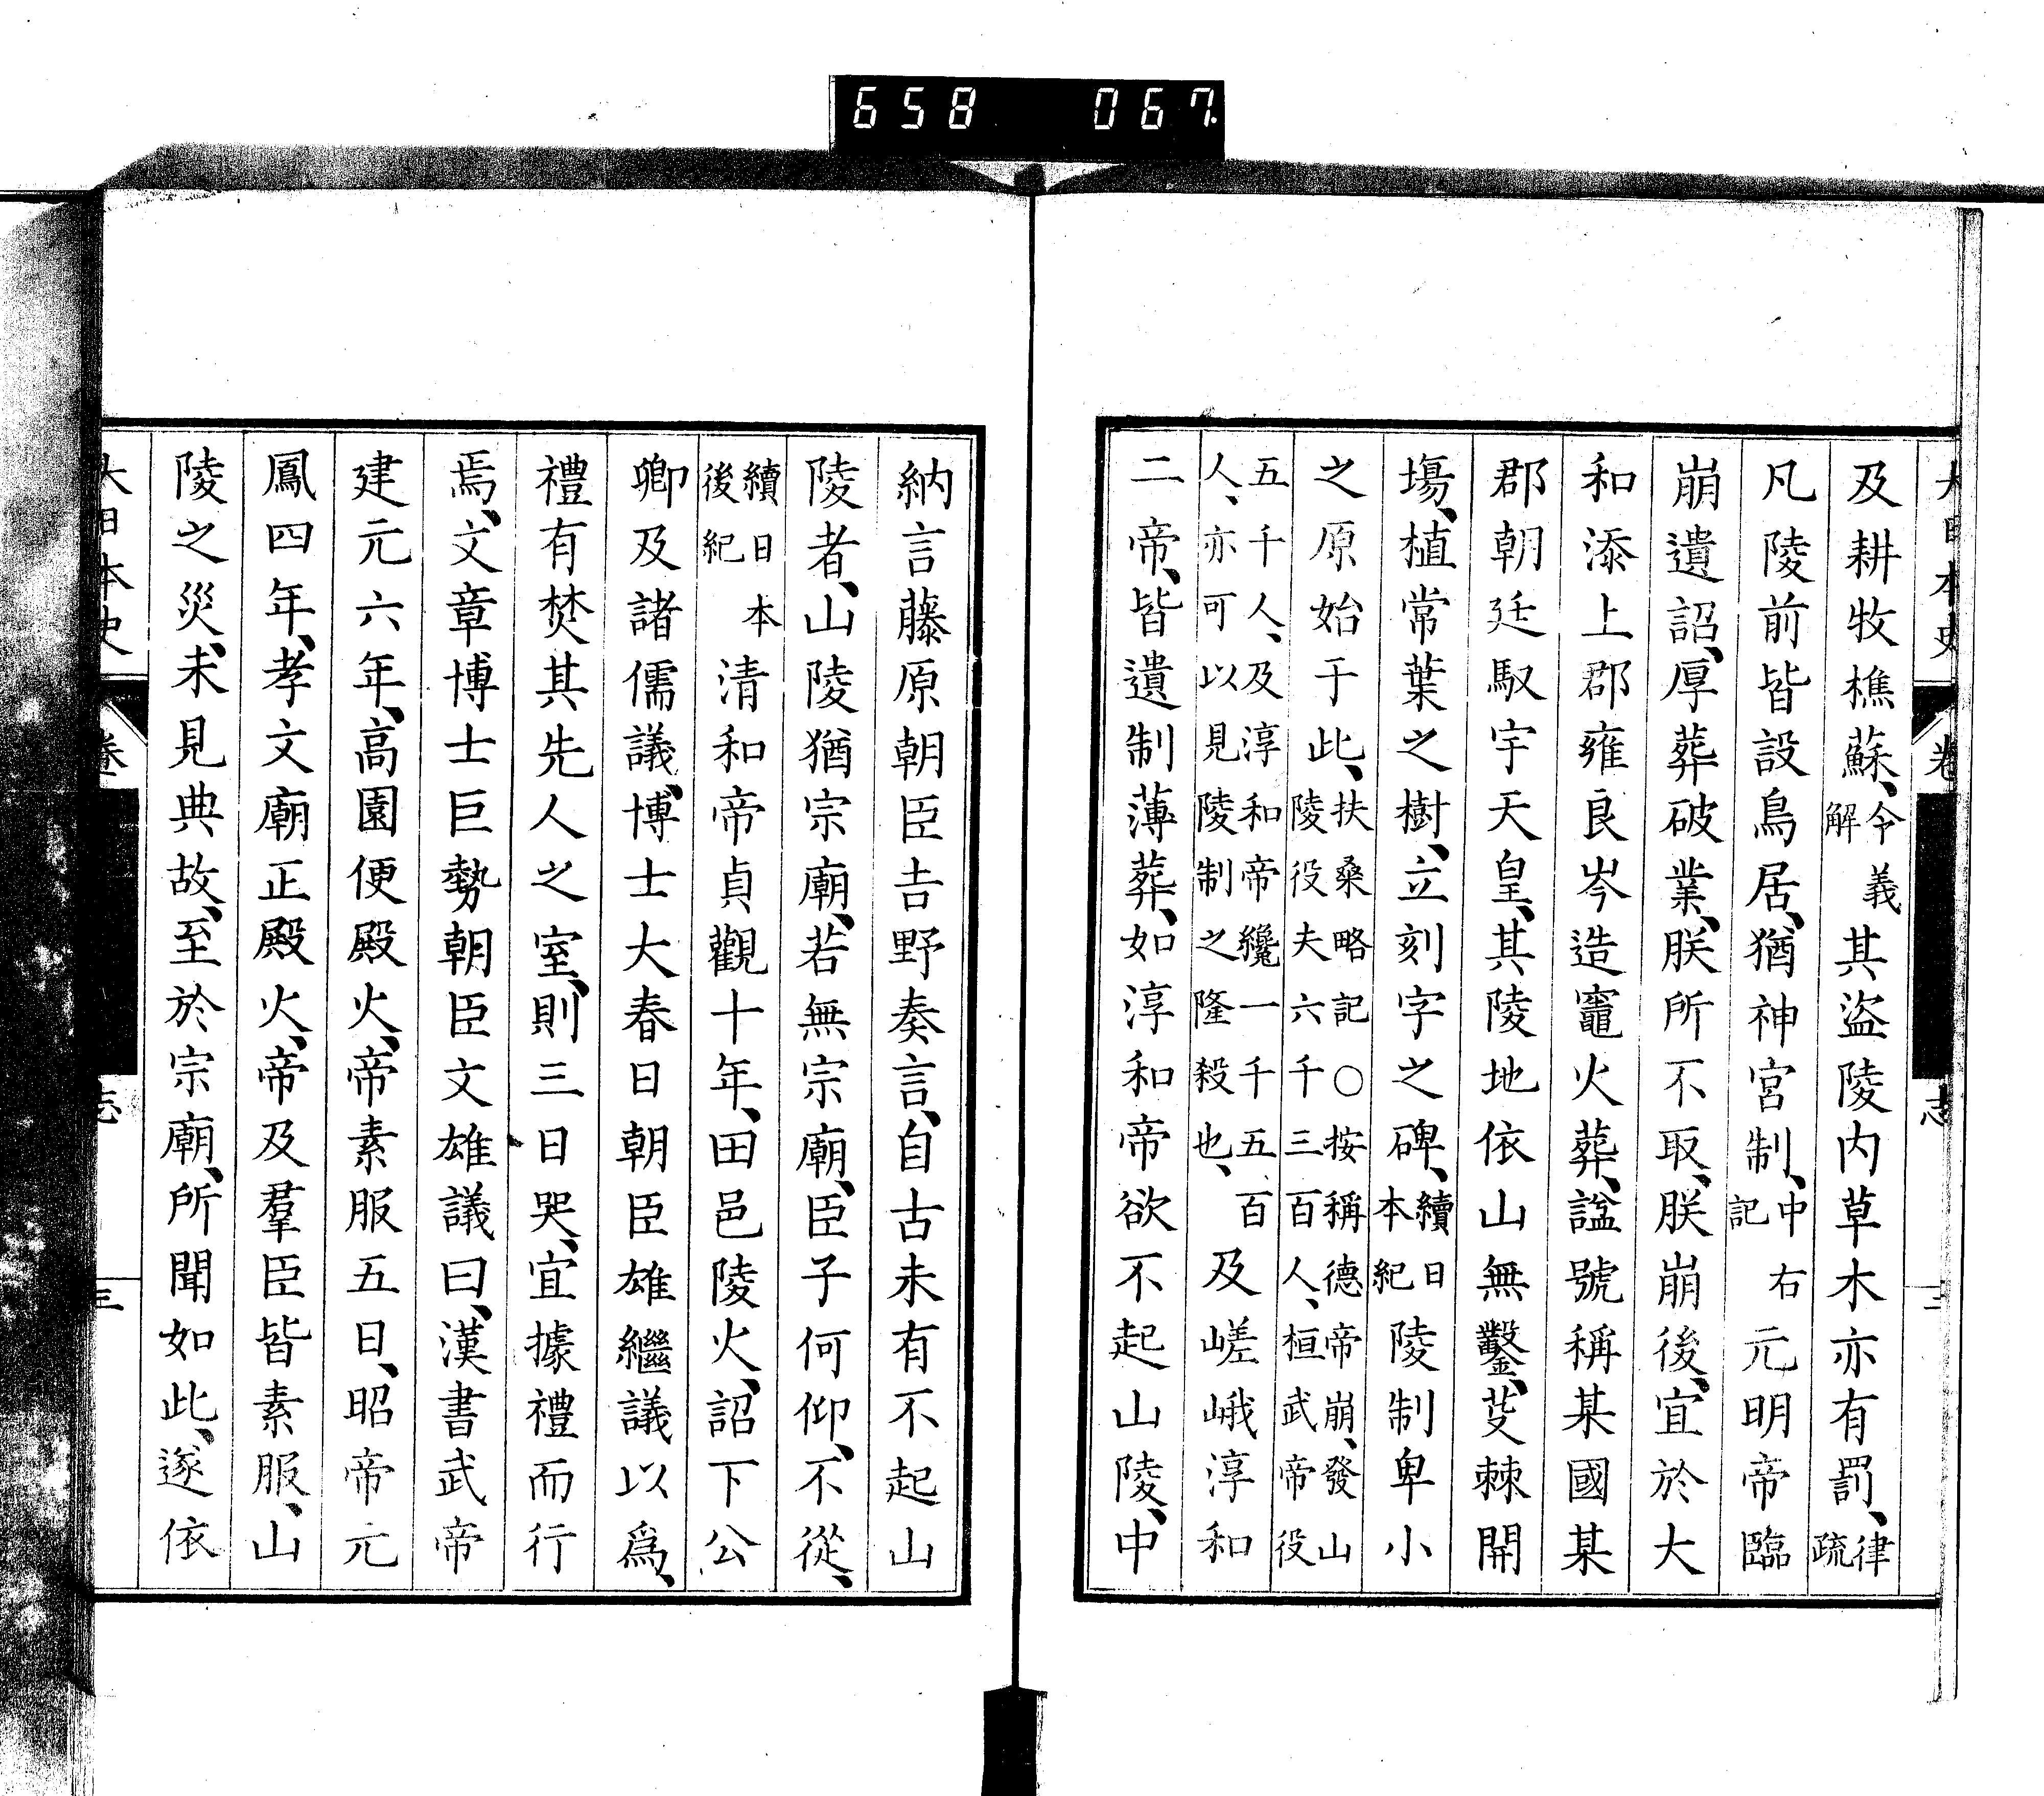 658 067
大日本史 卷 志 三
及耕牧樵蘇、令義解其盗陵内草木亦有罰、律疏
凡陵前皆設鳥居、猶神宮制、中右記元明帝臨
崩遺詔、厚葬破業、朕所不取、朕崩後、宜於大
和添上郡雍良岑造竈火葬、諡號稱某國某
郡朝廷馭宇天皇、其陵地依山無鑿、芟棘開
場、植常葉之樹、立刻字之碑、續日本紀陵制卑小
之原始于此、扶桑略記○按稱德帝崩、發山陵役夫六千三百人、桓武帝役
五千人、及淳和帝纔一千五百人、亦可以見陵制之隆殺也、及嵯峨淳和
二帝、皆遺制薄葬、如淳和帝欲不起山陵、中
納言藤原朝臣吉野奏言、自古未有不起山
陵者、山陵猶宗廟、若無宗廟、臣子何仰、不從、
續日本後紀清和帝貞觀十年、田邑陵火、詔下公
卿及諸儒議、博士大春日朝臣雄繼議以爲、
禮有焚其先人之室、則三日哭、宜據禮而行
焉、文章博士巨勢朝臣文雄議曰、漢書武帝
建元六年、高園便殿火、帝素服五日、昭帝元
鳳四年、孝文廟正殿火、帝及羣臣皆素服、山
陵之災、未見典故、至於宗廟、所聞如此、遂依
大日本史 卷 志 三